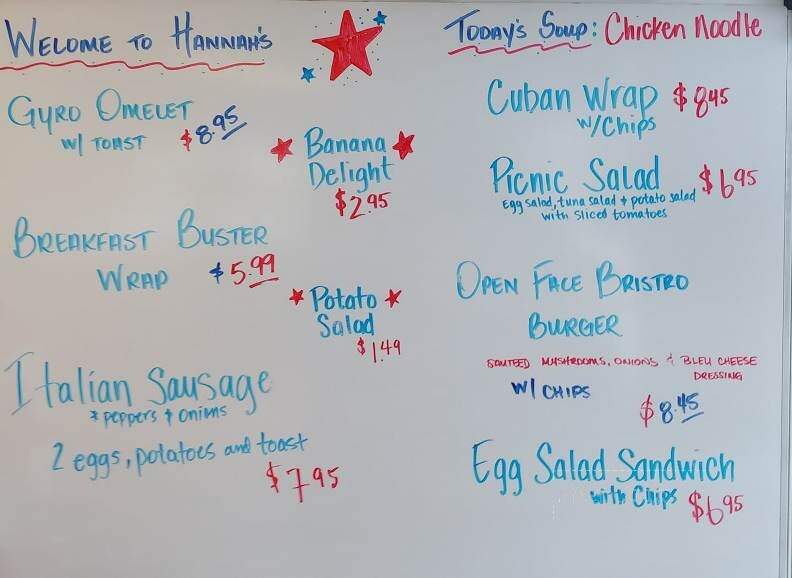 WELOME TO HANNAH'S
GYRO OMELET
W/ TOAST $8.95
BREAKFAST BUSTER
WRAP $5.99
Italian Sausage
* peppers + onions
2 eggs, potatoes and toast
$7.95
Banana
Delight
$2.95
Potato
Salad
$1.49
TODAY'S SOUP: Chicken Noodle
Cuban Wrap $8.45
w/Chips
Picnic Salad $6.95
Egg salad, tuna salad + potato salad
with sliced tomatoes
OPEN FACE BRISTRO
BURGER
SAUTEED MUSHROOMS, ONIONS & BLEU CHEESE
DRESSING
W/ CHIPS
$8.45
Egg Salad Sandwich
with Chips $6.95